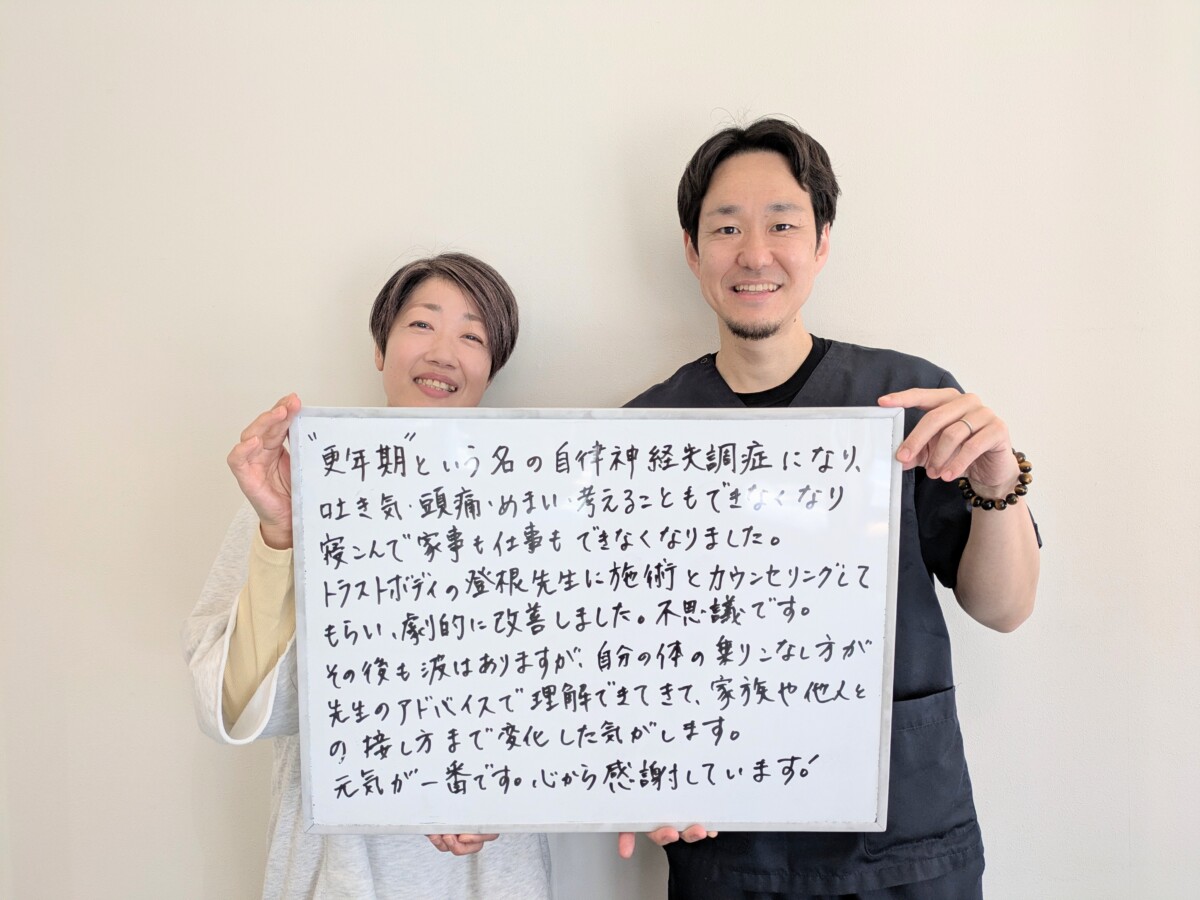 "更年期"という名の自律神経失調症になり、
吐き気・頭痛・めまい・考えることもできなくなり
寝こんで家事も仕事もできなくなりました。
トラストボディの登根先生に施術とカウンセリングして
もらい、劇的に改善しました。不思議です。
その後も波はありますが、自分の体の乗りこなし方が
先生のアドバイスで理解できてきて、家族や他人と
の接し方まで変化した気がします。
元気が一番です。心から感謝しています!